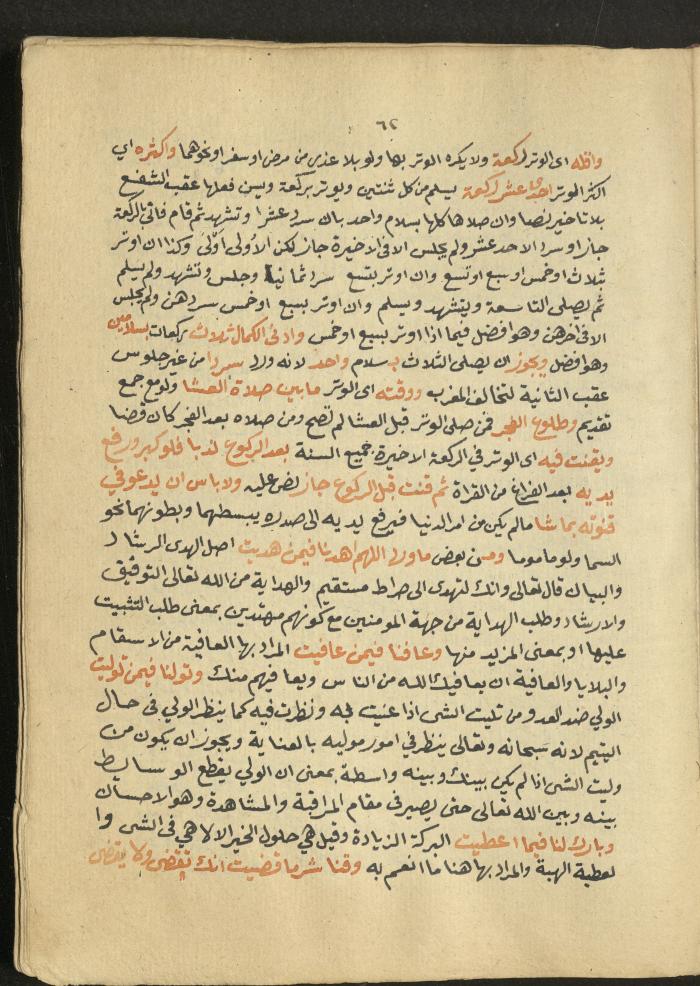 ٦٢
واقله اى الوتر ركعة ولا يكره الوتر بها ولو بلا عذر من مرض او سفر او نحوهما واكثره اي
اكثر الوتر احدى عشر ركعة يسلم من كل ثنتين ويوتر بركعة ويسن فعلها عقب الشفع
بلا تاخير نصا وان صلاها كلها بسلام واحد بان سرد عشرا وتشهد ثم قام فاتى بالركعة
جاز او سرد الاحد عشر ولم يجلس الا فى الاخيرة جاز لكن الاولى اولى وكذا ان اوتر
بثلاث او خمس او سبع او تسع وان اوتر بتسع سرد ثمانيا وجلس وتشهد ولم يسلم
ثم يصلى التاسعة ويتشهد ويسلم وان اوتر بسبع او خمس سردهن ولم يجلس
الا فى اخرهن وهو افضل فيما اذا اوتر بسبع او خمس وادنى الكمال ثلاث ركعات بسلامين
وهو افضل ويجوز ان يصلى الثلاث بسلام واحد لانه ورد سردا من غير جلوس
عقب الثانية لتخالف المغرب ووقته اى الوتر ما بين صلاة العشا ولو مع جمع
تقديم وطلوع الفجر فمن صلى الوتر قبل العشا لم تصح ومن صلاه بعد الفجر كان قضا
ويقنت فيه اى الوتر في الركعة الاخيرة جميع السنة بعد الركوع ندبا فلو كبر ورفع
يديه بعد الفراغ من القراة ثم قنت قبل الركوع جاز نص عليه ولا باس ان يدعو في
قنوته بما شا ما لم يكن من امر الدنيا فيرفع يديه الى صدره يبسطهما وبطونهما نحو
السما ولو ماموما ومن بعض ما ورد اللهم اهدنا فيمن هديت اصل الهدى الرشاد
والبيان قال تعالى وانك لتهدى الى صراط مستقيم والهداية من الله تعالى التوفيق
والارشاد وطلب الهداية من جهة المومنين مع كونهم مهتدين بمعنى طلب التثبيت
عليها او بمعنى المزيد منها وعافنا فيمن عافيت المراد بها العافية من الاسقام
والبلايا والعافية ان يعافيك الله من الناس ويعافيهم منك وتولنا فيمن توليت
الولي ضد العدو من تليت الشى اذا عنيت به ونظرت فيه كما ينظر الولي فى حال
اليتيم لانه سبحانه وتعالى ينظر في امور موليه بالعناية ويجوز ان يكون من
وليت الشى اذا لم يكن بينك وبينه واسطة بمعنى ان الولي يقطع الوسايط
بينه وبين الله تعالى حتى يصير فى مقام المراقبة والمشاهدة وهو الاحسان
وبارك لنا فيما اعطيت البركة الزيادة وقيل هي حلول الخير الالاهي فى الشى وا
لعطية الهبة والمراد بها هنا ما انعم به وقنا شر ما قضيت انك تقضى ولا يقضى